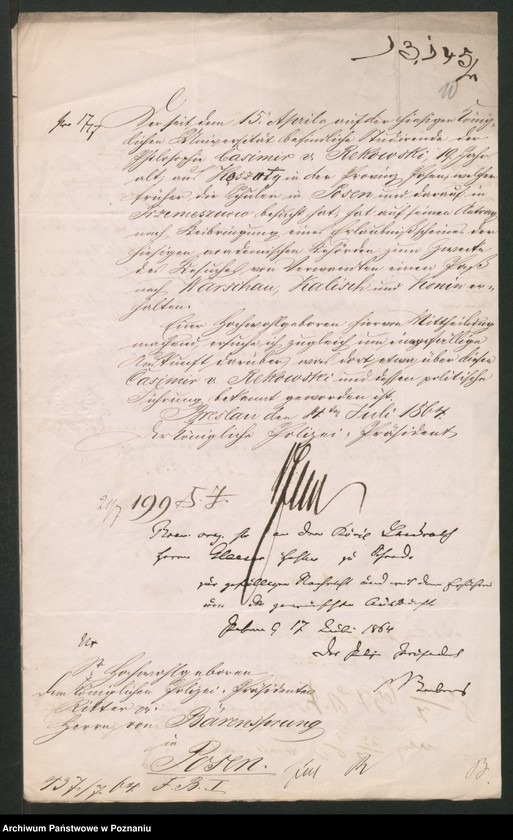 13.145/
10
pr 17/7
Der seit dem 15. Aprils auf der hiesigen König-
lichen Universität befindliche Studirende der
Philosophie Casimir v. Rekowski, 19 Jahr
alt, aus in der Provinz Posen, welcher
früher die Schulen in Posen und darauf in
Trzemeszno besucht hat, hat auf seinen Antrag
nach Beibringung eines Erlaubnißscheines der
hiesigen academischen Behörden zum Zwecke
des Besuches von Verwandten einen Paß
nach Warschau, Kalisch und Konin er-
halten.
Euer Hochwohlgeboren hiervon Mittheilung
machend, ersuche ich zugleich um
Auskunft darüber, was dort etwa über diesen
Casimir v Rekowski und dessen politische
Führung bekannt geworden ist.
Breslau den ten Juli 1864
Der Königliche Polizei-Präsident
20/7 199
an den König Landrath
Herrn zu
zur gefälligen Nachricht und mit dem Ersuchen
um die gewünschte Auskunft
Posen d 17 Juli 1864
Der Poliz Präsident
An
Sr Hochwohlgeboren
dem Königlichen Polizei-Präsidenten
Ritter
Herrn von Bärensprung
in
Posen.
137./7.64 F. B. I
Archiwum Państwowe w Poznaniu